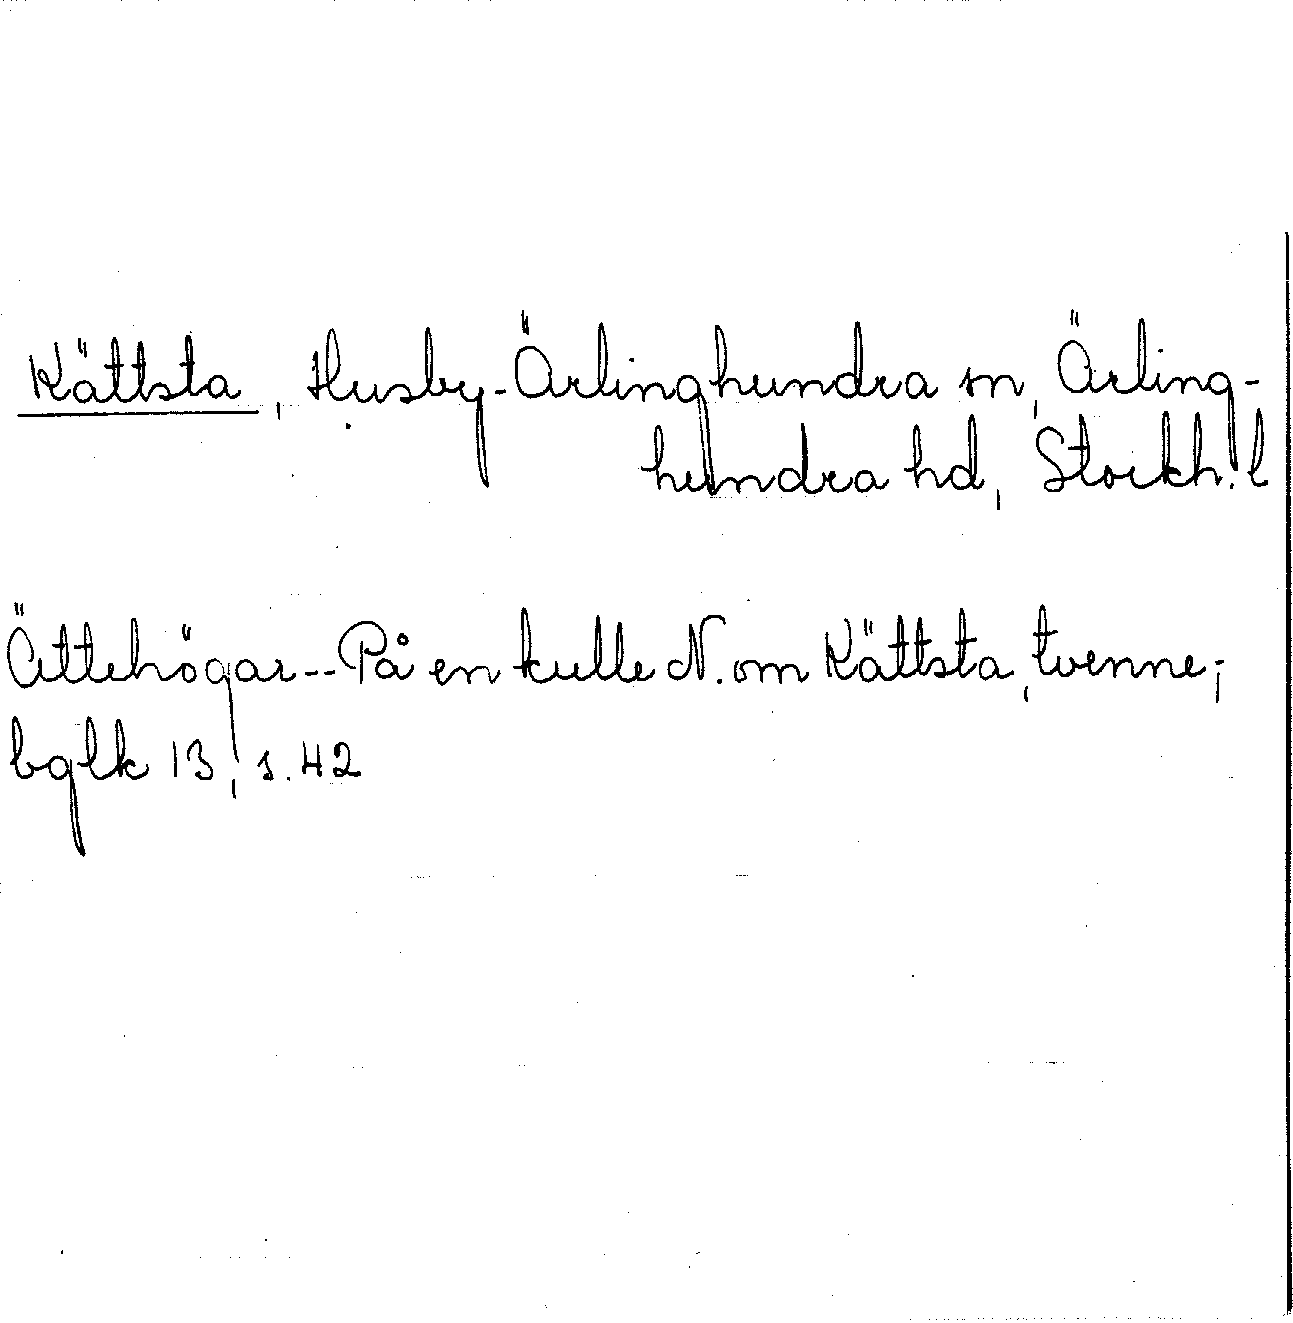 Kättsta, Husby-Ärlinghundra sn, Ärling-
hundra hd, Stockh. l
Ättehögar-- På en kulle N. om Kättsta, tvenne;
bglk 13, s. 42